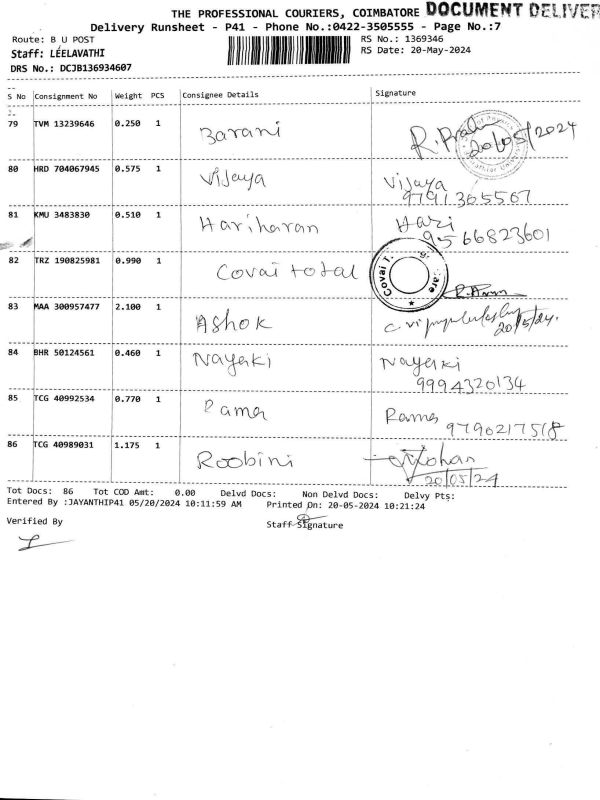 THE PROFESSIONAL COURIERS, COIMBATORE DOCUMENT DELIVER
Delivery Runsheet - P41 - Phone No.:0422-3505555 - Page No.:7
Route: B U POST RS No.: 1369346
Staff: LEELAVATHI RS Date: 20-May-2024
DRS No.: DCJB136934607
S No Consignment No Weight PCS Consignee Details Signature
79 TVM 13239646 0.250 1 Barani 20/05/2024
80 HRD 704067945 0.575 1 Vijaya Vijaya
9791365567
81 KMU 3483830 0.510 1 Hariharan Hari
9566823601
82 TRZ 190825981 0.990 1 Covai total Covai T.
83 MAA 300957477 2.100 1 Ashok 20/5/24.
84 BHR 50124561 0.460 1 Nayaki Nayaki
9994320134
85 TCG 40992534 0.770 1 Rama Rama
9790217518
86 TCG 40989031 1.175 1 Roobini
20/05/24
Tot Docs: 86 Tot COD Amt: 0.00 Delvd Docs: Non Delvd Docs: Delvy Pts:
Entered By :JAYANTHIP41 05/20/2024 10:11:59 AM Printed On: 20-05-2024 10:21:24
Verified By Staff Signature